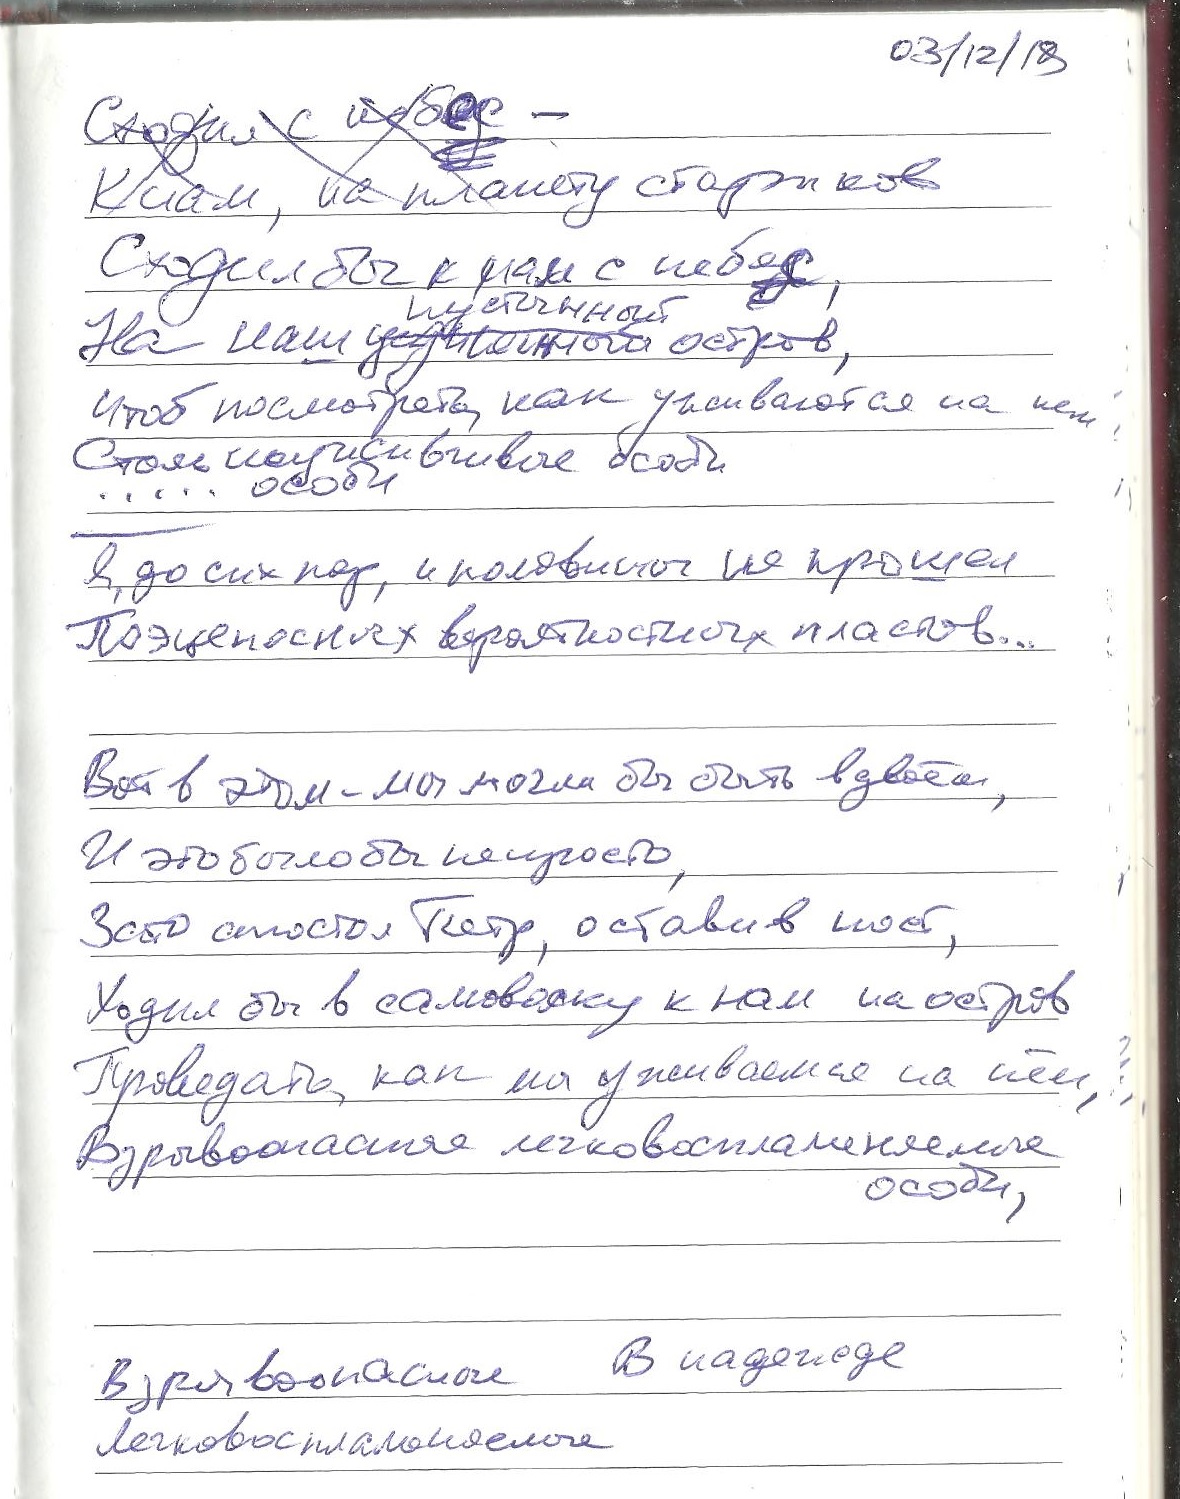 03/12/18
Сходил с небес –
К нам, на планету стариков
Сходил бы к нам с небес,
пустынный
На наш уединенный остров,
Чтоб посмотреть, как уживаются на нем
Столь неуживчивые особи
..... особи
Я, до сих пор, и половины не прошел
Поэценосных вероятностных пластов...
Вот в этом – мы могли бы быть вдвоём,
И это было бы непросто,
Зато апостол Петр, оставив пост,
Ходил бы в самоволку к нам на остров
Проведать, как мы уживаемся на нём,
Взрывоопасные легковоспламеняемые
особи,
В надежде
Взрывоопасные
Легковоспламеняемые